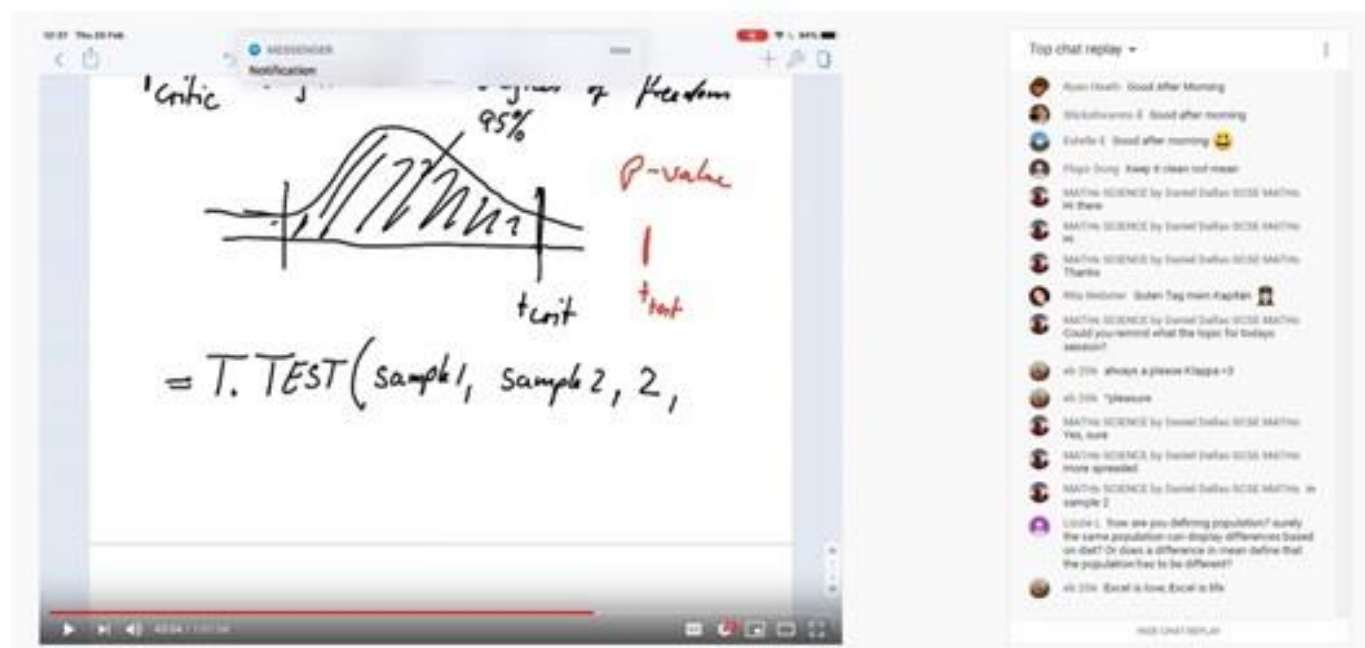 Thu 20 Feb
MESSENGER
Notification
of freedom
95%
P-value
tcrit
ttest
= T. TEST(sample1, sample 2, 2,
Top chat replay
Ryan Heath Good After Morning
Good after morning
Estelle E Good after morning
Keep it clean not mean
MATHs SCIENCE by Daniel Dallas GCSE MATHs
Hi there
MATHs SCIENCE by Daniel Dallas GCSE MATHs
Hi
MATHs SCIENCE by Daniel Dallas GCSE MATHs
Thanks
Guten Tag mein Kapitän
MATHs SCIENCE by Daniel Dallas GCSE MATHs
Could you remind what the topic for todays
session?
always a please Klappa <3
*pleasure
MATHs SCIENCE by Daniel Dallas GCSE MATHs
Yes, sure
MATHs SCIENCE by Daniel Dallas GCSE MATHs
more spreaded
MATHs SCIENCE by Daniel Dallas GCSE MATHs in
sample 2
how are you defining population? surely
the same population can display differences based
on diet? Or does a difference in mean define that
the population has to be different?
Excel is love, Excel is life
HIDE CHAT REPLAY